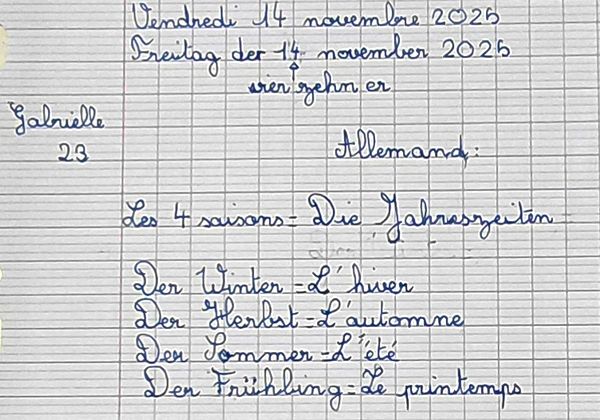 Vendredi 14 novembre 2025
Freitag der 14. november 2025
vierzehn er
Gabrielle
23
Allemand:
Les 4 saisons = Die Jahreszeiten
Der Winter = L'hiver
Der Herbst = L'automne
Der Sommer = L'été
Der Frühling = Le printemps